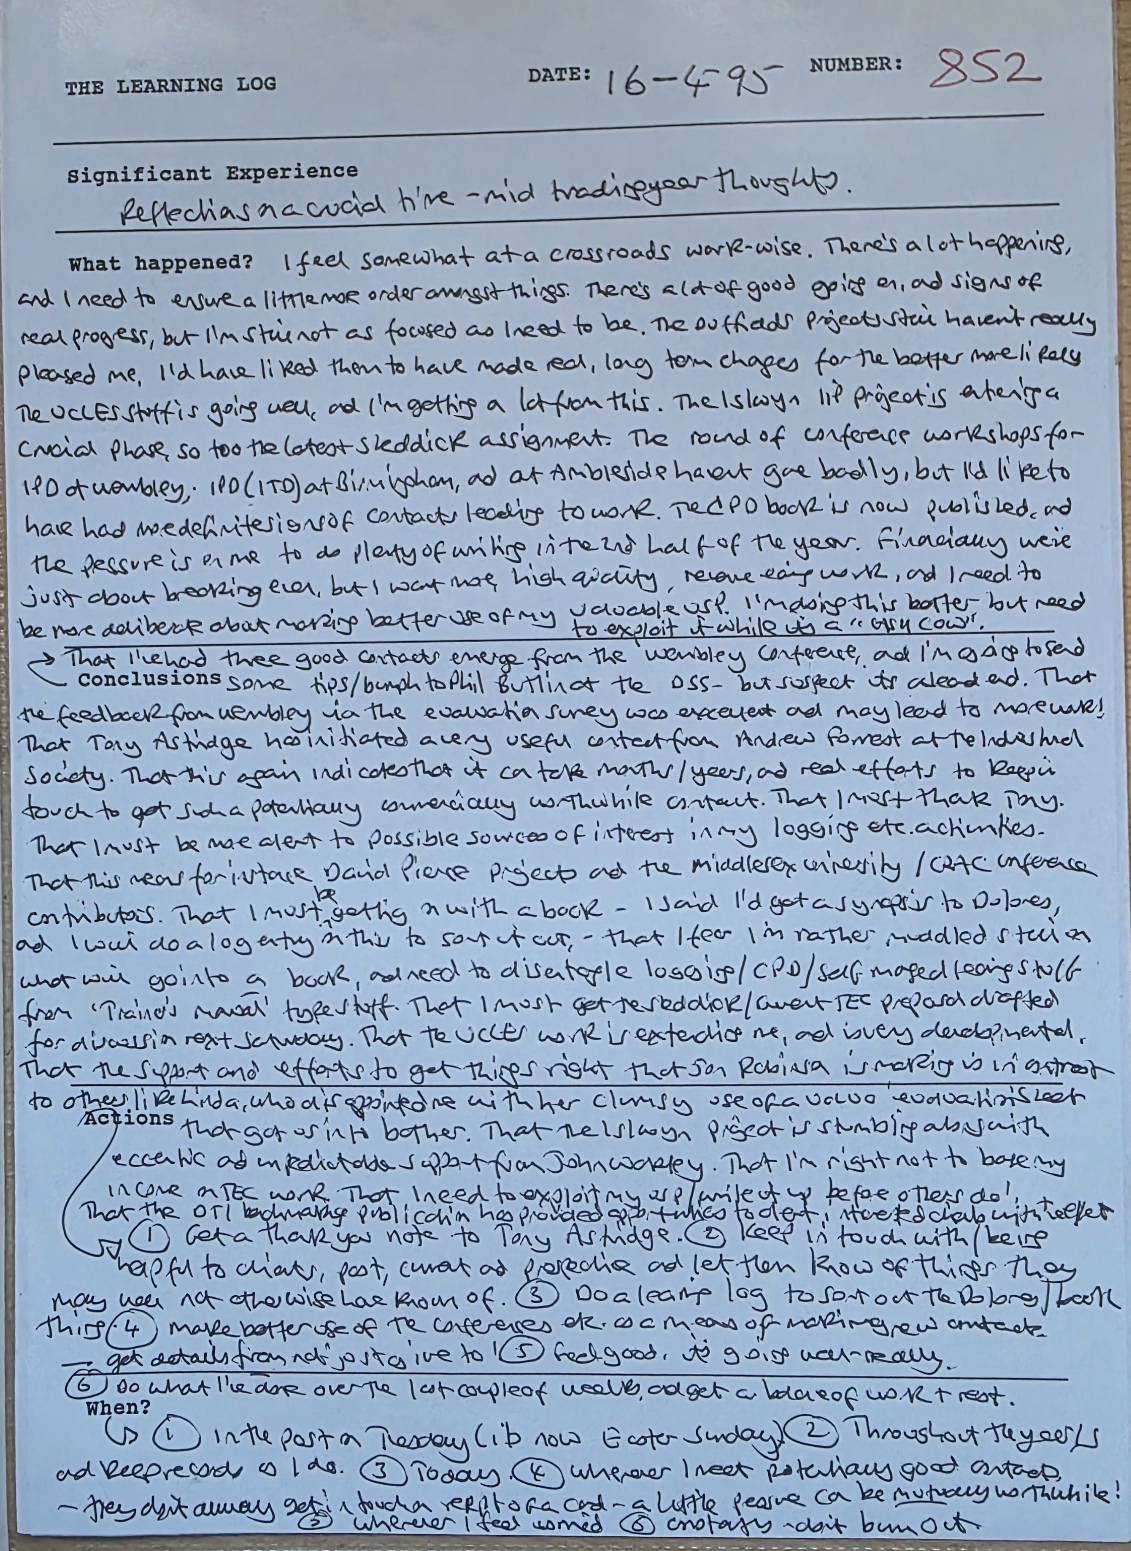 THE LEARNING LOG DATE: 16-4-95 NUMBER: 852
Significant Experience
Reflections on a crucial time - mid trading year thoughts.
What happened? I feel somewhat at a crossroads work-wise. There's a lot happening,
and I need to ensure a little more order amongst things. There's a lot of good going on, and signs of
real progress, but I'm still not as focused as I need to be. The Duffields projects still haven't really
pleased me, I'd have liked them to have made real, long term changes for the better more likely
The UCLES stuff is going well, and I'm getting a lot from this. The Islwyn IiP project is entering a
crucial phase, so too the latest Skeddick assignment. The round of conference workshops for
IPD at Wembley, IPD (ITD) at Birmingham, and at Ambleside haven't gone badly, but I'd like to
have had more definite signs of contacts leading to work. The CPD book is now published, and
the pressure is on me to do plenty of writing in the 2nd half of the year. Financially we're
just about breaking even, but I want more, high quality, revenue earning work, and I need to
be more deliberate about making better use of my valuable USP. I'm doing this better but need
to exploit it while it's a "cash cow".
→ That I've had three good contacts emerge from the Wembley Conference, and I'm going to send
Conclusions some tips/bumph to Phil Butlin at the DSS - but suspect it's a dead end. That
the feedback from Wembley via the evaluation survey was excellent and may lead to more work!
That Tony Astridge has initiated a very useful contact from Andrew Forrest at the Industrial
Society. That this again indicates that it can take months/years, and real efforts to keep in
touch to get such a potentially commercially worthwhile contact. That I must thank Tony.
That I must be more alert to possible sources of interest in my logging etc. activities.
That this means for instance David Pierce Projects and the Middlesex University/CRAC conference
contributors. That I must be getting on with a book - I said I'd get a synopsis to Dolores,
and I will do a log entry on this to sort it out, - that I fear I'm rather muddled still on
what will go into a book, and need to disentangle logging/CPD/self managed learning stuff
from 'Trainer's manual' type stuff. That I must get the Skeddick/Gwent TEC proposal drafted
for discussion next Saturday. That the UCLES work is extending me, and is very developmental.
That the support and efforts to get things right that Jon Robinson is making is in contrast
to others like Linda, who disappointed me with her clumsy use of a Volvo evaluation sheet
Actions that got us into bother. That the Islwyn project is stumbling along with
eccentric and unpredictable support from John Workley. That I'm right not to base my
income on TEC work. That I need to exploit my USP/write it up before others do!
That the DTI benchmarking publication has provided opportunities to client, interested chats with
① Get a thank you note to Tony Astridge. ② Keep in touch with/being
helpful to clients, past, current and prospective and let them know of things they
may well not otherwise have known of. ③ Do a learning log to sort out the Dolores/book
thing ④ make better use of the conferences etc. as a means of making new contacts
- get details from not just give to! ⑤ Feel good, it's going well - really.
⑥ Do what I've done over the last couple of weeks, and get a balance of work + rest.
When?
① In the post on Tuesday (it's now Easter Sunday) ② Throughout the year/s
and keep records as I do. ③ Today. ④ whenever I meet potentially good contacts,
- they don't always get in touch on receipt of a card - a little pressure can be mutually worthwhile!
⑤ whenever I feel worried ⑥ constantly - don't burn out.